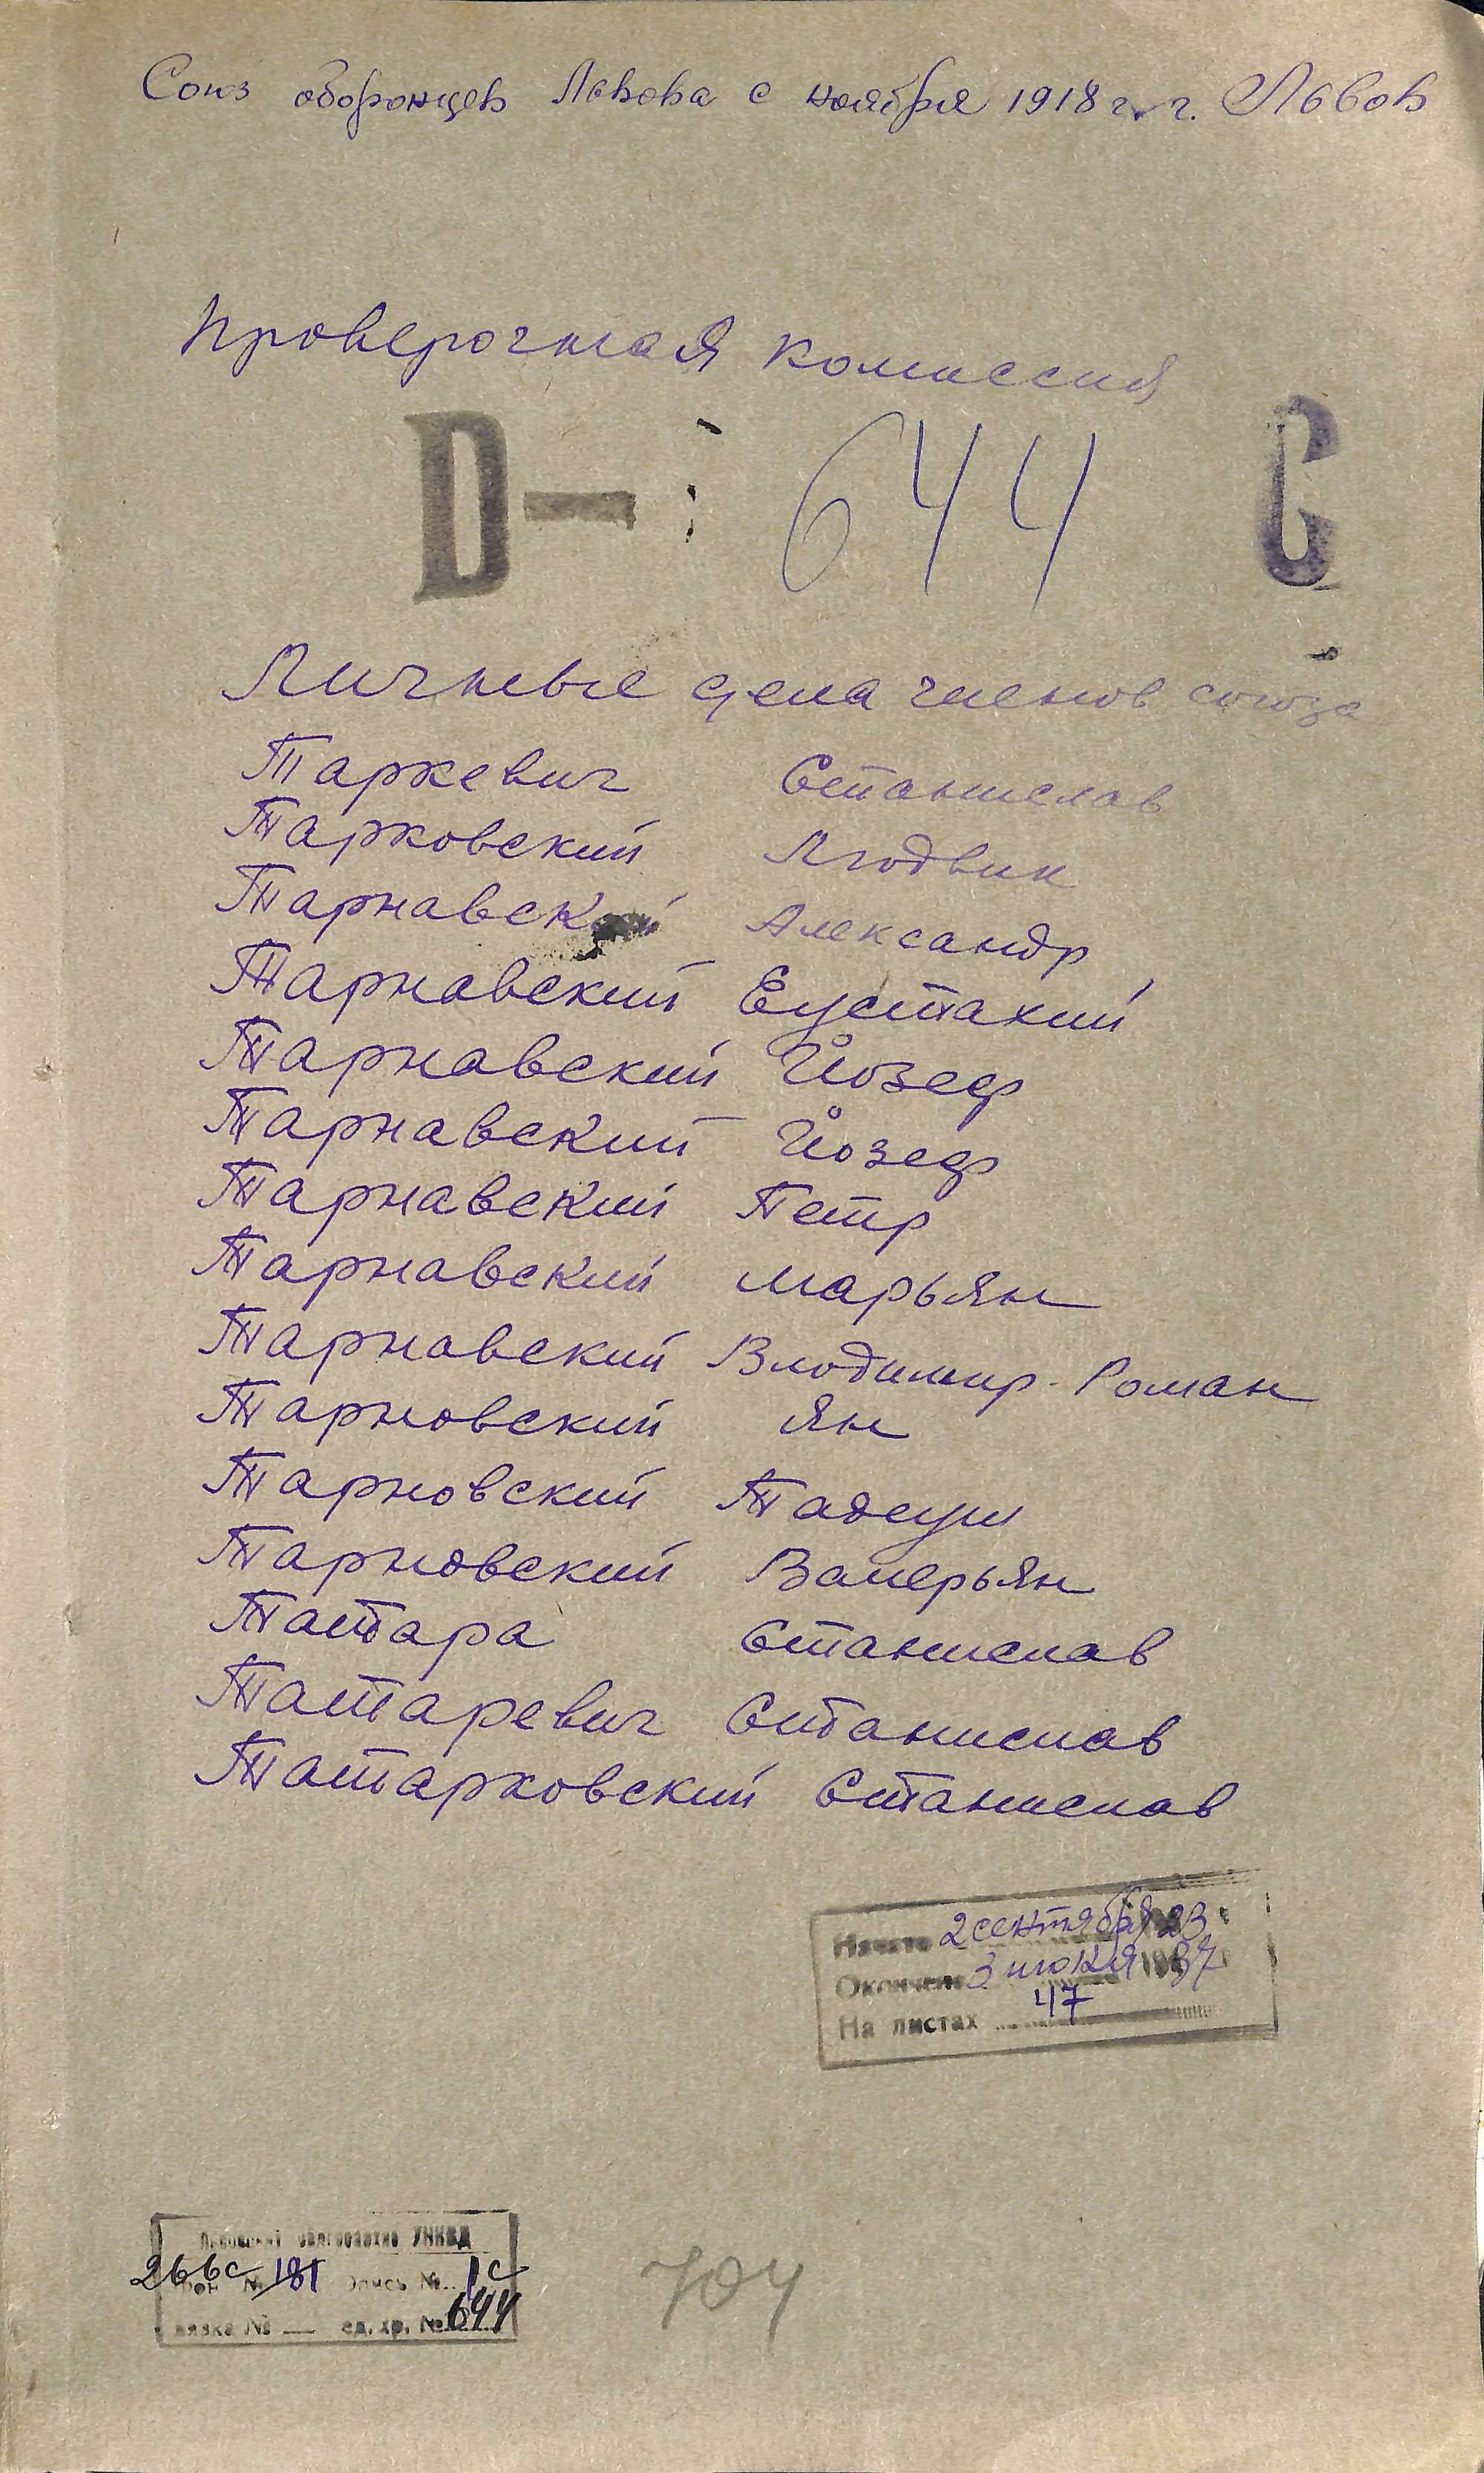 Союз оборонцев Львова с ноября 1918 г. г. Львов
Проверочная комиссия
D — 644 С
Личные дела членов союза
Таркевич Станислав
Тарковский Людвик
Тарнавский Александр
Тарнавский Еустахий
Тарнавский Йозеф
Тарнавский Йозеф
Тарнавский Петр
Тарнавский Марьян
Тарнавский Влодимир-Роман
Тарновский Ян
Тарновский Тадеуш
Тарновский Валерьян
Татара Станислав
Татаревич Станислав
Татарковский Станислав
Начато 2 сентября 23
Окончено 3 июня 1937
На листах 47
облгосархив УНКВД
266с № 181 Опись № 1с
вязка № — ед. хр. № 644
704